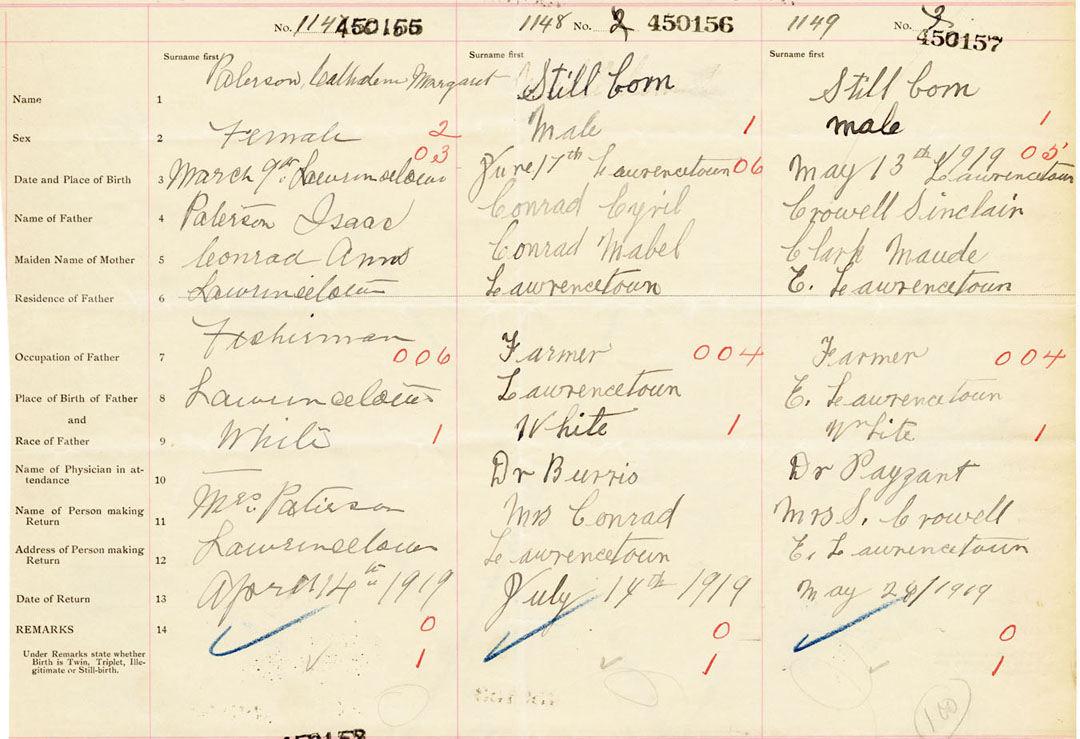 No. 114 450155 1148 No. 2 450156 1149 No. 2 450157
Surname first Surname first Surname first
Name 1 Paterson, Margaret Still born Still born
Sex 2 Female 2 Male 1 male 1
Date and Place of Birth 3 March 9th Lawrincetown 03 June 17th Lawrencetown 06 May 13th 1919 Lawrencetown 05
Name of Father 4 Paterson Isaac Conrad Cyril Crowell Sinclair
Maiden Name of Mother 5 Conrad Anns Conrad Mabel Clark Maude
Residence of Father 6 Lawrincetown Lawrencetown E. Lawrencetown
Occupation of Father 7 Fisherman 006 Farmer 004 Farmer 004
Place of Birth of Father 8 Lawrincetown Lawrencetown E. Lawrencetown
and
Race of Father 9 White 1 White 1 White 1
Name of Physician in at-
tendance 10 Dr Burris Dr Payzant
Name of Person making
Return 11 Mrs Paterson Mrs Conrad Mrs S. Crowell
Address of Person making
Return 12 Lawrincetown Lawrencetown E. Lawrencetown
Date of Return 13 April 14th 1919 July 14th 1919 May 28/1919
REMARKS 14 0 0 0
Under Remarks state whether
Birth is Twin, Triplet, Ille-
gitimate or Still-birth. 1 1 1
100
450158